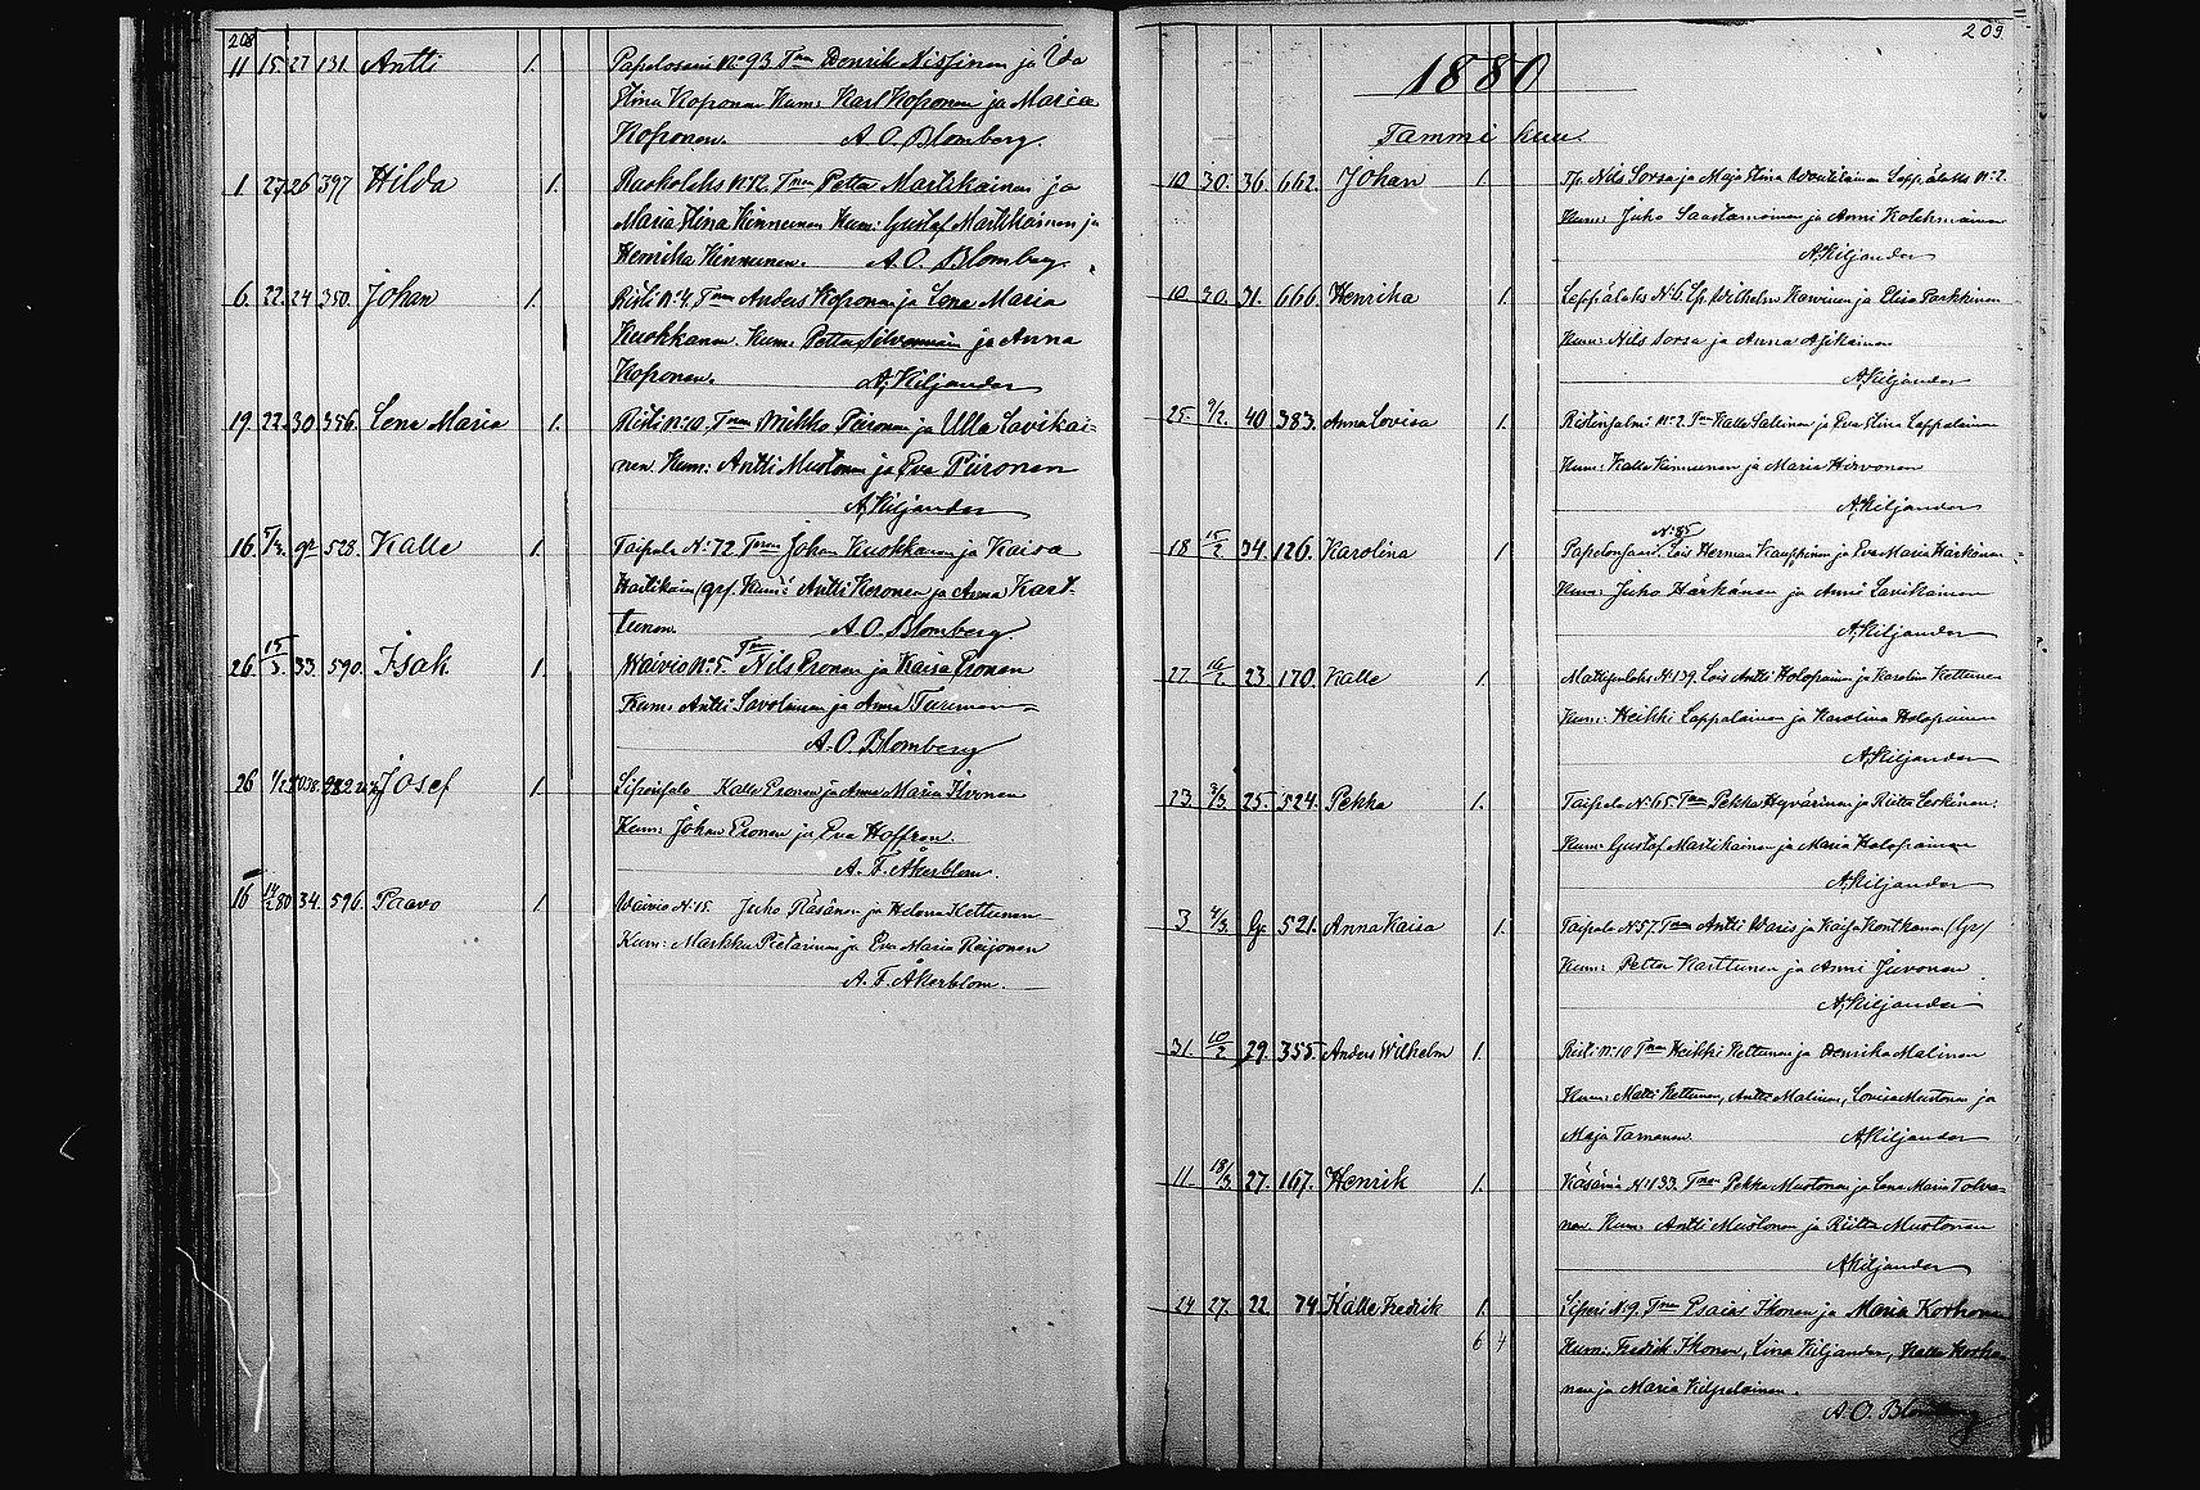 208
11 15. 27 131. Antti 1. Papelosaari No 93 Tmn Henrik Nissinen ja Ida
Stina Koponen Kum: Karl Koponen ja Maria
Koponen. A. O. Blomberg.
1 27. 26 397 Hilda 1. Ruokolaks No 12. Tmn Petter Martikainen ja
Maria Stina Kinnunen Kum: Gustaf Martikainen ja
Henrika Kinnunen. A. O. Blomberg.
6. 22. 24 350. Johan 1. Risti No 4. Tmn Anders Koponen ja Lena Maria
Kuokkanen. Kum: Petter Silvennoin ja Anna
Koponen. A. Kiljander
19. 22. 30 356. Lena Maria 1. Risti No 10. Tmn Mikko Piironen ja Ulla Lavikai=
nen. Kum: Antti Mustonen ja Eva Piironen
A. Kiljander
16. 5/3. gr 528. Kalle 1. Taipale No 72 Tmn Johan Kuokkanen ja Kaisa
Hartikain (gr). Kum: Antti Keronen ja Anna Kart-
tunen. A. O. Blomberg.
26. 15/3. 33. 590. Isak 1. Waivio No 5. Tmn Nils Eronen ja Kaisa Eronen
Kum: Antti Savolainen ja Anna Turunen
A. O. Blomberg
26 Josef 1. Liperisalo Kalle Eronen ja Anna Maria Ilvonen
Kum: Johan Eronen ja Eva Hoffren.
A. F. Åkerblom.
16 14/2 80 34. 596. Paavo 1. Waivio No 15. Juho Räsänen ja Helena Kettunen
Kum: Markku Pietarinen ja Eva Maria Reijonen
A. F. Åkerblom.
209
1880
Tammi kuu.
10 30. 36. 662. Johan 1. Nils Sorsa ja Maja Stina Leppälaks No 2.
Kum: Juho Saastamoinen ja Anni Kolehmainen
A. Kiljander
10 30. 31. 666. Henrika 1. Leppälaks No 6. Lp. Wilhelm Karvinen ja Elisa Parkkinen
Kum: Nils Sorsa ja Anna
A. Kiljander
25. 9/2. 40 383. Anna Lovisa 1. Ristinsalmi No 2. Tmn Kalle Sallinen ja Eva Stina Lappalainen
Kum: Kalle Kinnunen ja Maria Hirvonen
A. Kiljander
No 85
18 15/2 34. 126. Karolina 1 Papelonsaari. Lois Herman Kauppinen ja Eva Maria Härkänen
Kum: Juho Härkänen ja Anni Lavikainen
A. Kiljander
27 16/2. 23. 170. Kalle 1. Mattisenlaks No 139. Lois Antti Holopainen ja Karolina Kettunen
Kum: Heikki Lappalainen ja Karolina Holopainen
A. Kiljander
23. 3/3 25. 524. Pekka 1. Taipale No 65. Tmn Pekka Hyvärinen ja Riitta Leskinen.
Kum: Gustaf Martikainen ja Maria Holopainen
A. Kiljander
3 4/3. Gr 521. Anna Kaisa 1. Taipale No 57. Tmn Antti Waris ja Kaisa Kontkanen (Gr)
Kum: Petter Karttunen ja Anni Juvonen
A. Kiljander
31. 10/2 29. 355. Anders Wilhelm 1. Risti No 10 Tmn Heikki Kettunen ja Henrika Malinen
Kum: Matti Kettunen, Antti Malinen, Lovisa Mustonen ja
Maja Tarnanen. A. Kiljander
11. 18/3 27. 167. Henrik 1. Käsämä No 133. Tmn Pekka Mustonen ja Lena Maria Tolva=
nen. Kum: Antti Mustonen ja Riitta Mustonen
A. Kiljander
24 27. 22 74. Kalle Fredrik 1. Liperi No 9. Tmn Esaias Ikonen ja Maria Korhonen
6 4 Kum: Fredrik Ikonen, Lina Kiljander, Kalle Korho
nen ja Maria Kilpelainen.
A. O. Blomberg